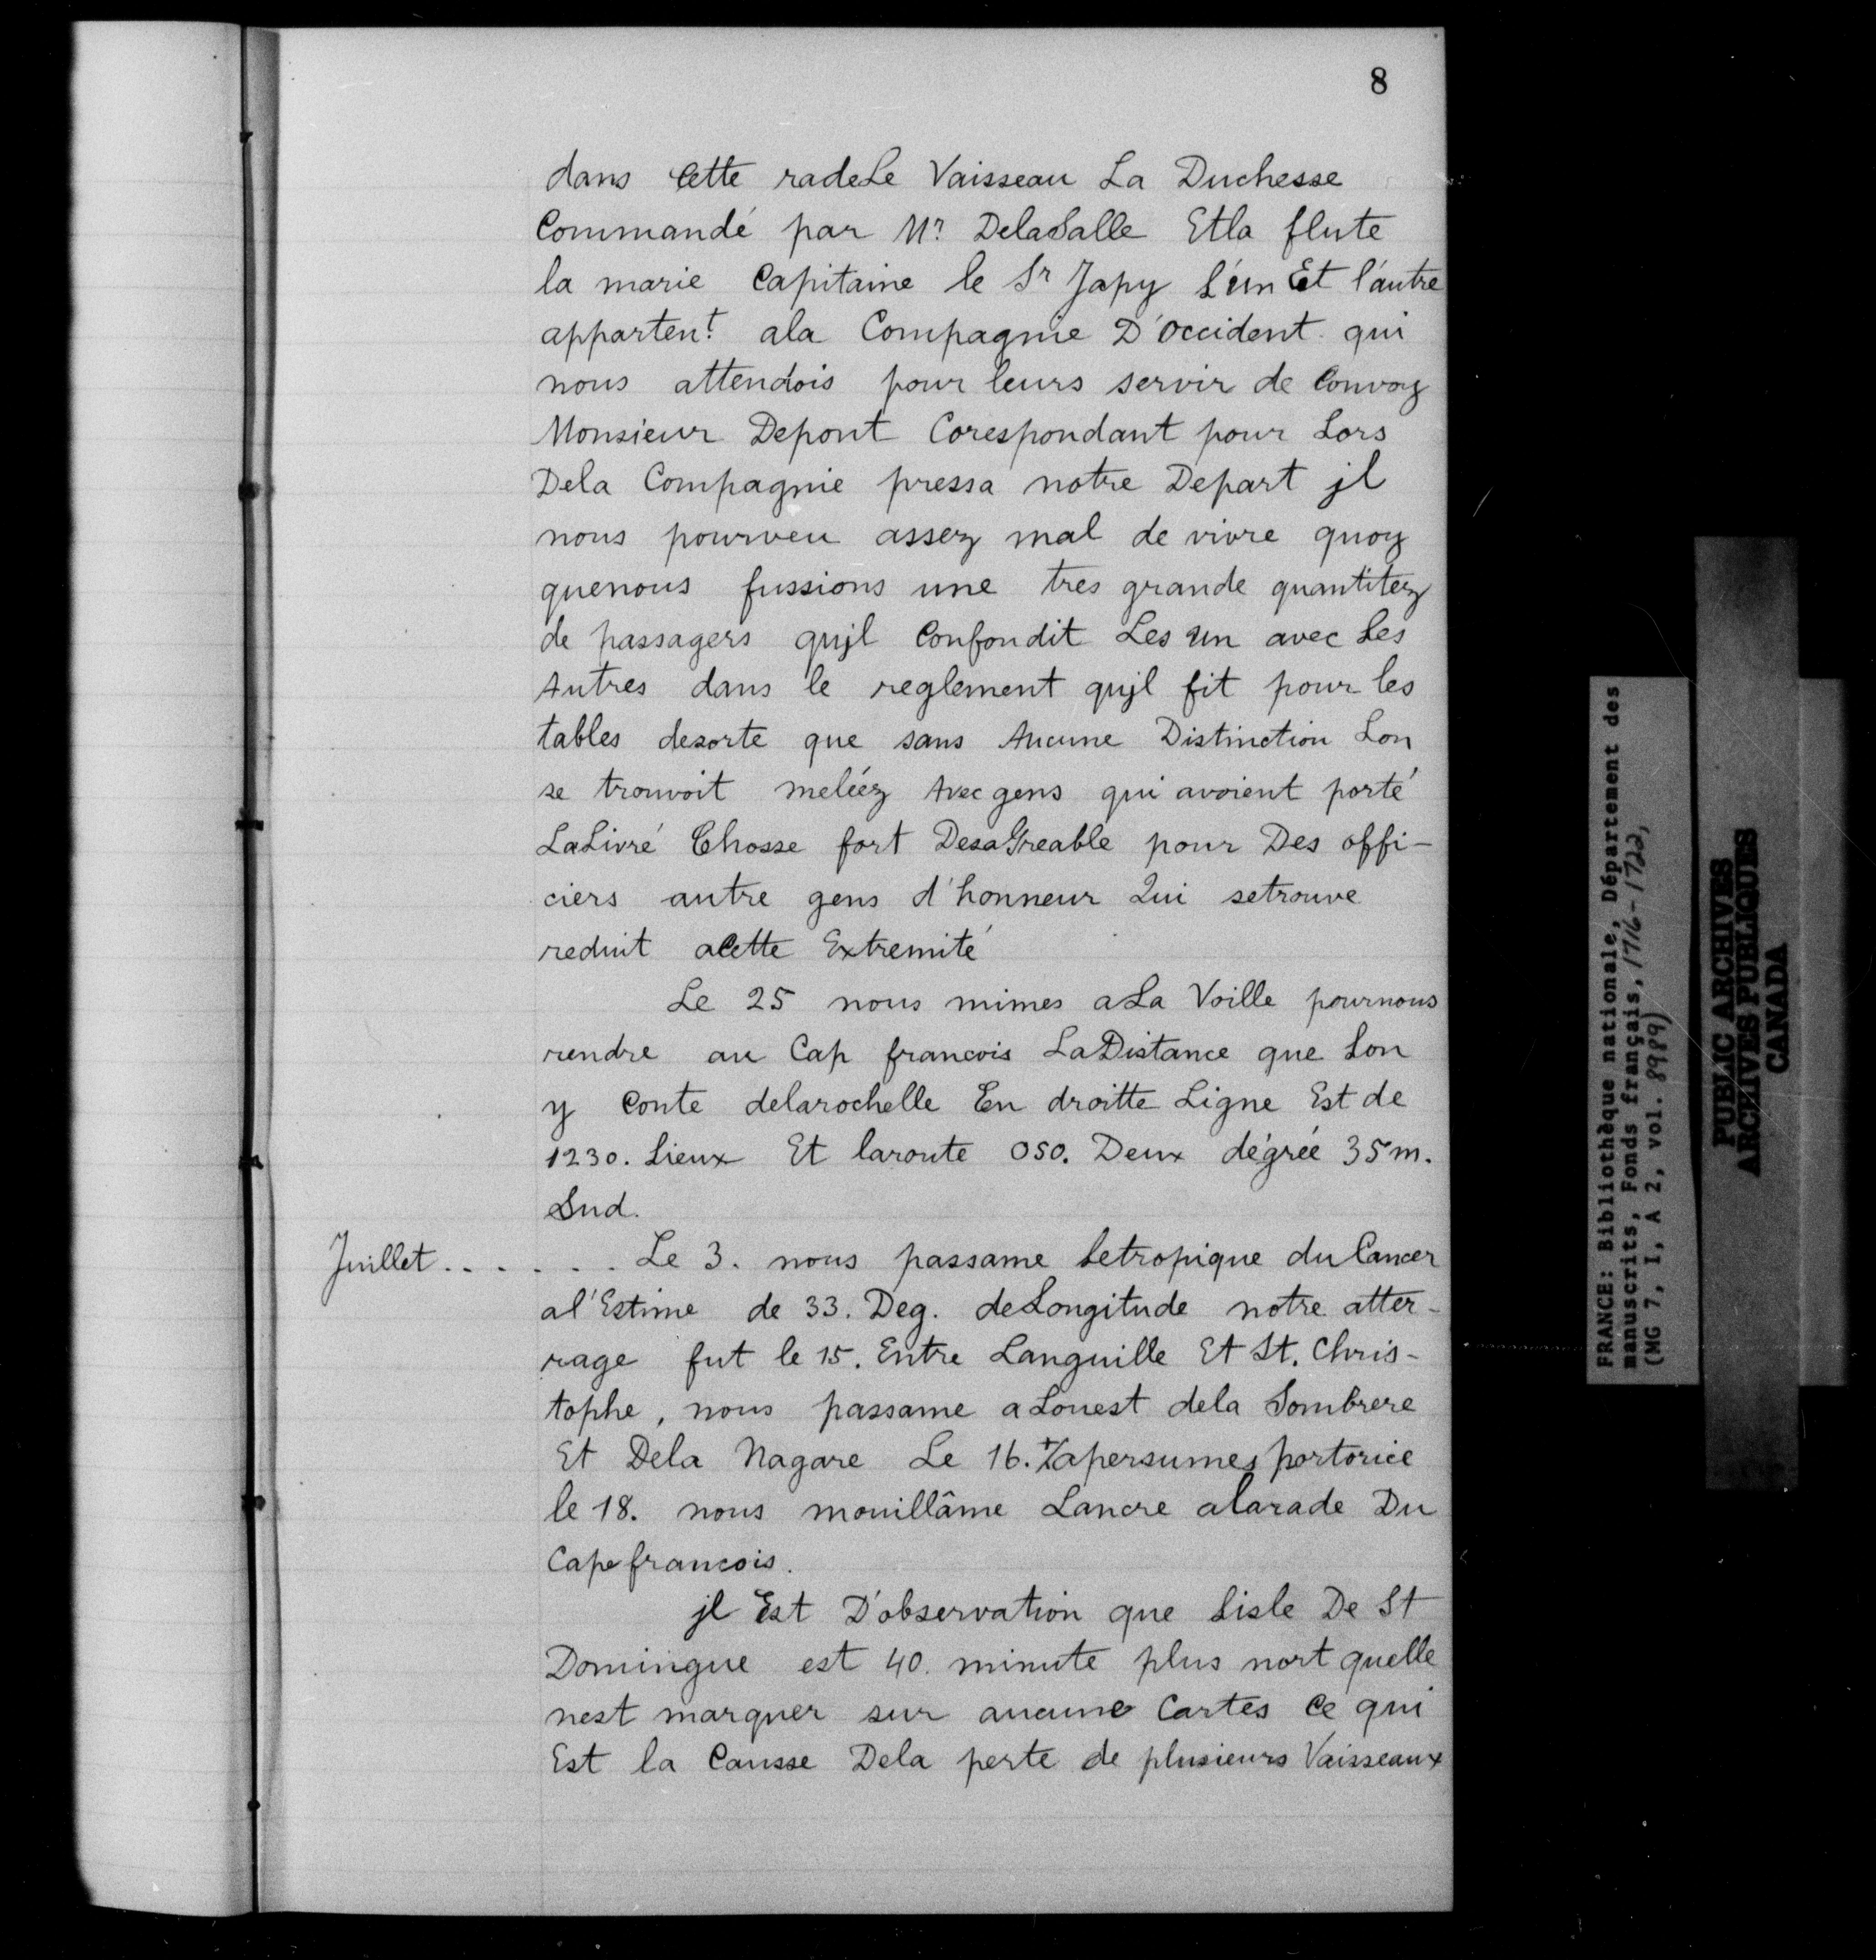 8
dans Cette radeLe Vaisseau La Duchesse
Commandé par Mr. DelaSalle Etla flute
la marie Capitaine le Sr Japy L'un Et l'autre
apparten.t ala Compagnie D'occident qui
nous attendois pour leurs servir de Convoy
Monsieur Depont Corespondant pour Lors
Dela Compagnie pressa notre Depart jl
nous pourveu assez mal de vivre quoy
quenous fussions une tres grande quantitez
de passagers qujl Confondit Les un avec Les
Autres dans le reglement qujl fit pour les
tables desorte que sans Aucune Distinction Lon
se trouvoit meléez Avec gens qui avoient porté
LaLivré Chosse fort DesaGreable pour Des offi-
ciers autre gens d'honneur Qui setrouve
reduit aCette Extremité
Le 25 nous mimes aLa Voille pournous
rendre au Cap francois LaDistance que Lon
y Conte delarochelle En droitte Ligne Est de
1230. Lieux Et laroute OSO. Deux dégrée 35 m.
Sud.
Juillet....... Le 3. nous passame Letropique du Cancer
al'Estime de 33. Deg. deLongitude notre atter-
rage fut le 15. Entre Languille Et St. Chris-
tophe, nous passame aLouest dela Sombrere
Et Dela Nagare Le 16. apersumes portorice
le 18. nous mouillâme Lancre alarade Du
Cape francois.
jl Est D'observation que Lisle De St
Domingue est 40. minute plus nort quelle
nest marquer sur aucune Cartes Ce qui
Est la Causse Dela perte de plusieurs Vaisseaux
FRANCE: Bibliothèque nationale, Département des
manuscrits, Fonds français, 1716-1722,
(MG 7, I, A 2, vol. 8989)
PUBLIC ARCHIVES
ARCHIVES PUBLIQUES
CANADA